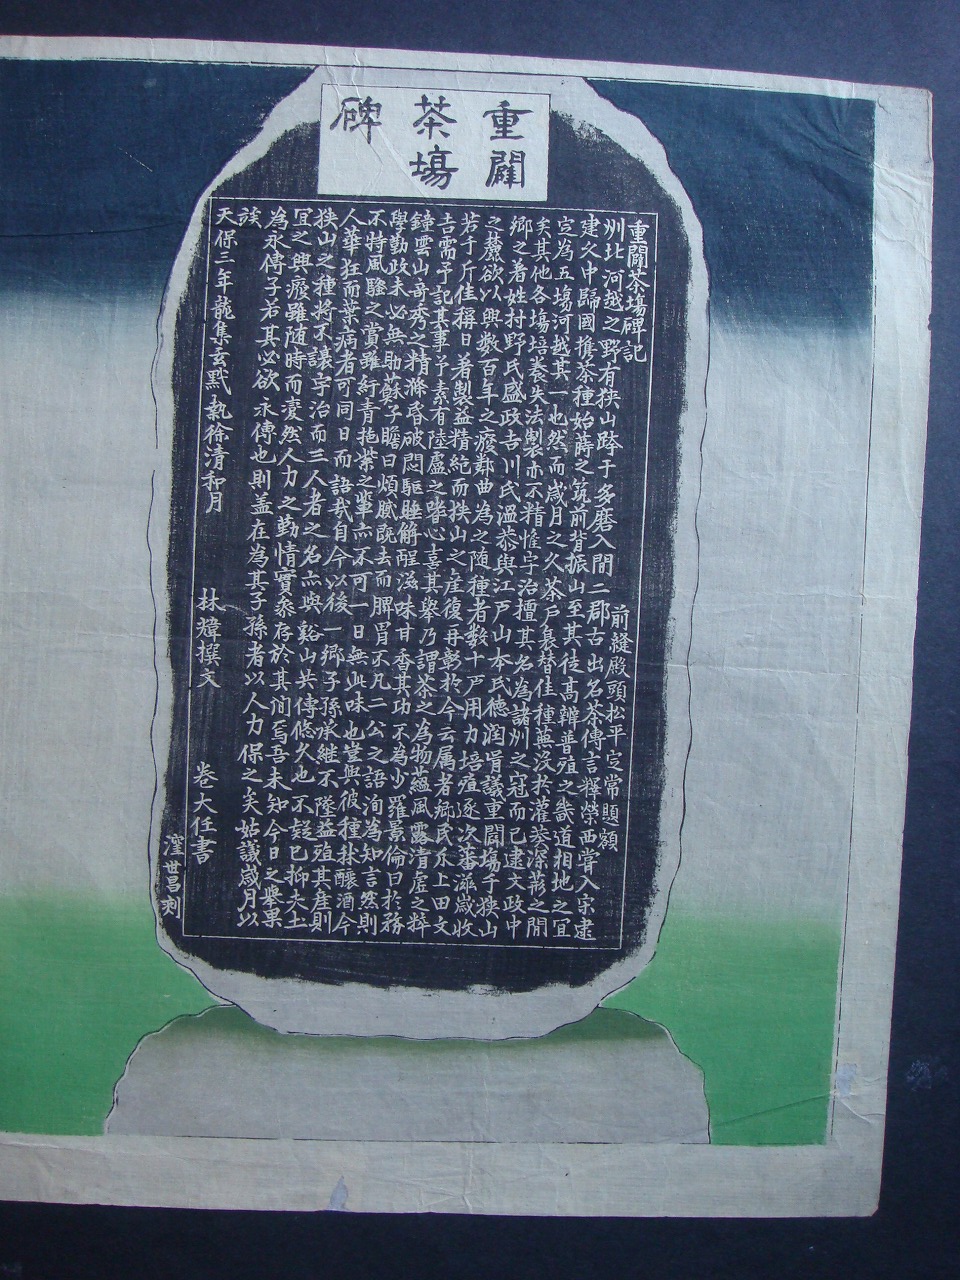 重闢
茶塲
碑
重闢茶塲碑記 前縫殿頭松平定常題額
州北河越之野有狹山跨于多磨入間二郡古出名茶傳言釋榮西嘗入宋逮
建久中歸國携茶種始蒔之筑前背振山至其徒高辨普殖之畿道相地之宜
定為五塲河越其一也然而歲月之久茶戶衰替佳種蕪没於灌莽深菰之間
矣其他各塲培養失法製亦不精惟宇治擅其名為諸州之冠而已逮文政中
鄉之耆姓村野氏盛政吉川氏溫恭與江戶山本氏德潤胥議重闢塲于狹山
之麓欲以興數百年之癈鄰曲為之随種者數十戶用力培殖逐次蕃滋歲收
若千斤佳稱日著製益精絕而狹山之產復再彰於今云属者鄉民介上田文
吉需予記其事予素有陸盧之嗜心喜其舉乃謂茶之為物蘊風露清虛之粹
鐘雲山奇秀之精滌昏破悶驅睡解酲滋味甘香其功不為少羅景倫曰於務
學勤政未必無助蘇子瞻曰煩膩既去而脾胃不凡二公之語洵為知言然則
不特風騷之賞雖紆青拖紫之輩亦不可一日無此味也豈與彼種秫釀酒令
人華狂而葉病者可同日而語哉自今以後一鄉子孫承継不墜益殖其產則
狹山之種將不讓宇治而三人者之名亦與谿山共傳悠久也不疑已抑夫土
宜之興癈雖随時而変然人力之勤惰實參存於其间焉吾未知今日之舉果
為永傳乎若其必欲永傳也則盖在為其子孫者以人力保之矣姑識歲月以
天保三年龍集玄黓執徐清和月 林韑撰文 巻大任書
窪世昌刻